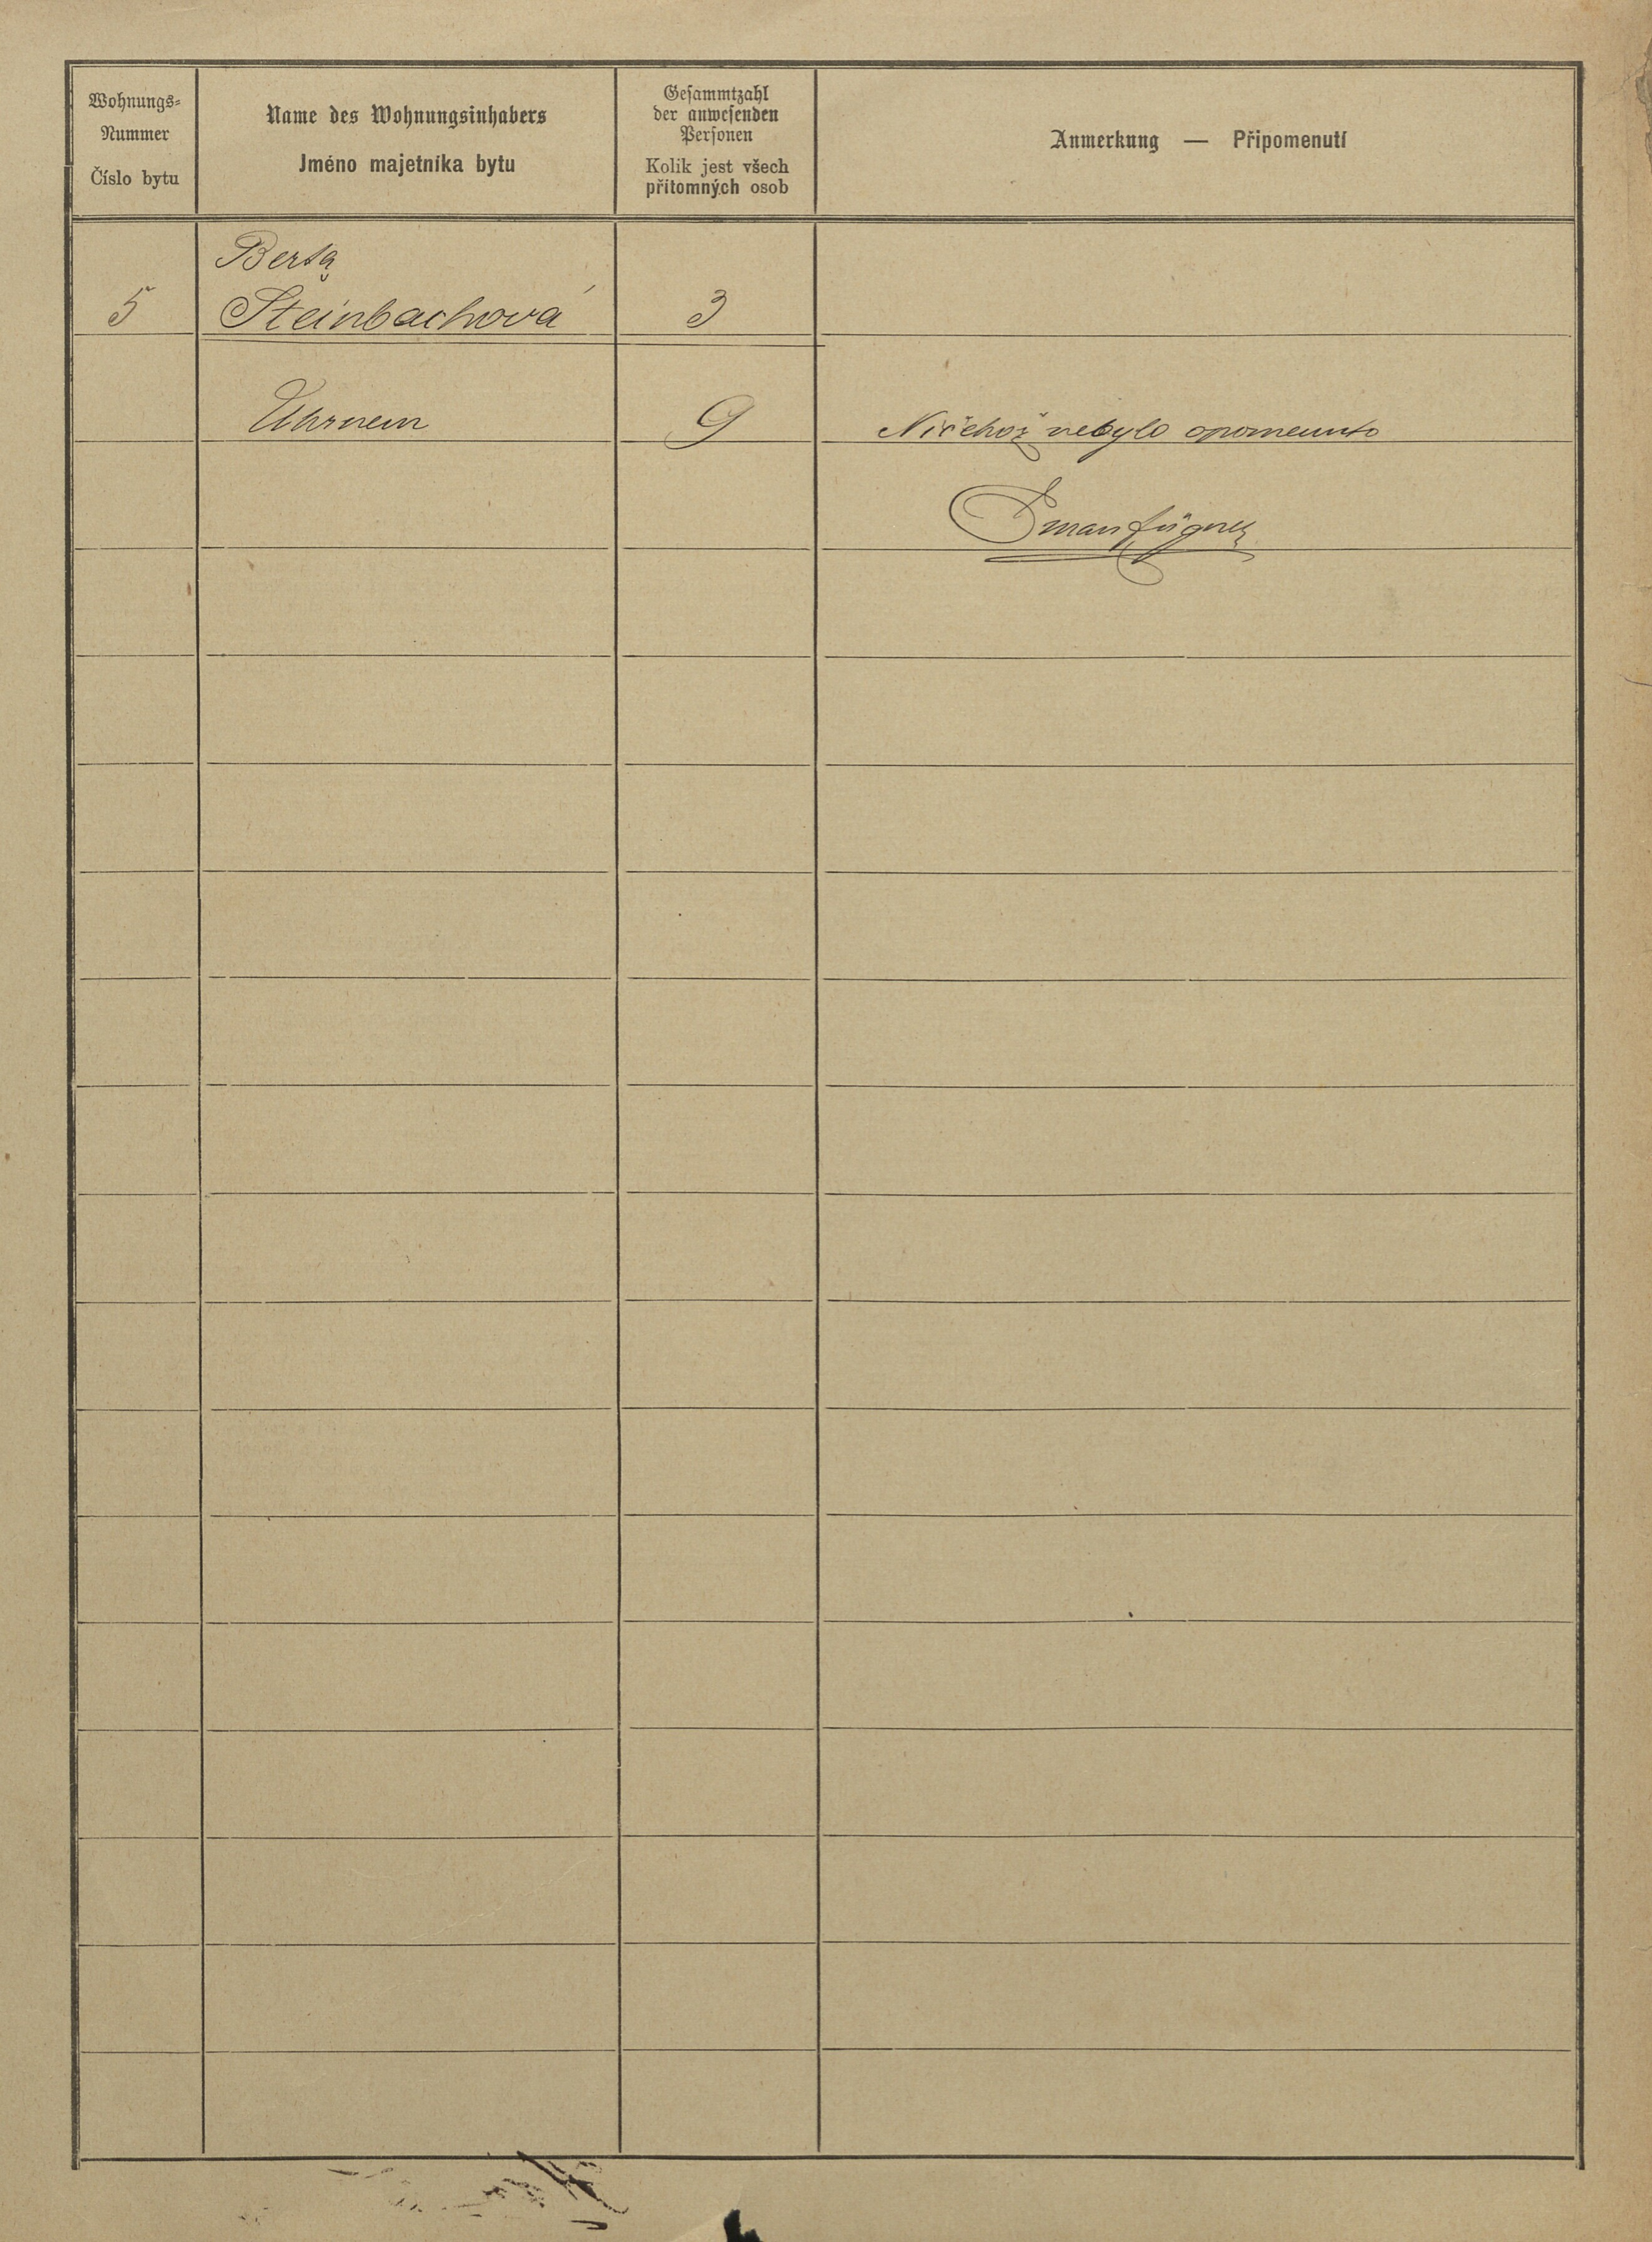 Wohnungs-
Nummer
Číslo bytu
Name des Wohnungsinhabers
Jméno majetníka bytu
Gesammtzahl
der anwesenden
Personen
Kolik jest všech
přítomných osob
Anmerkung — Připomenutí
Berta
5 Steinbachová 3
Uhrnem 9 Ničehož nebylo opomenuto